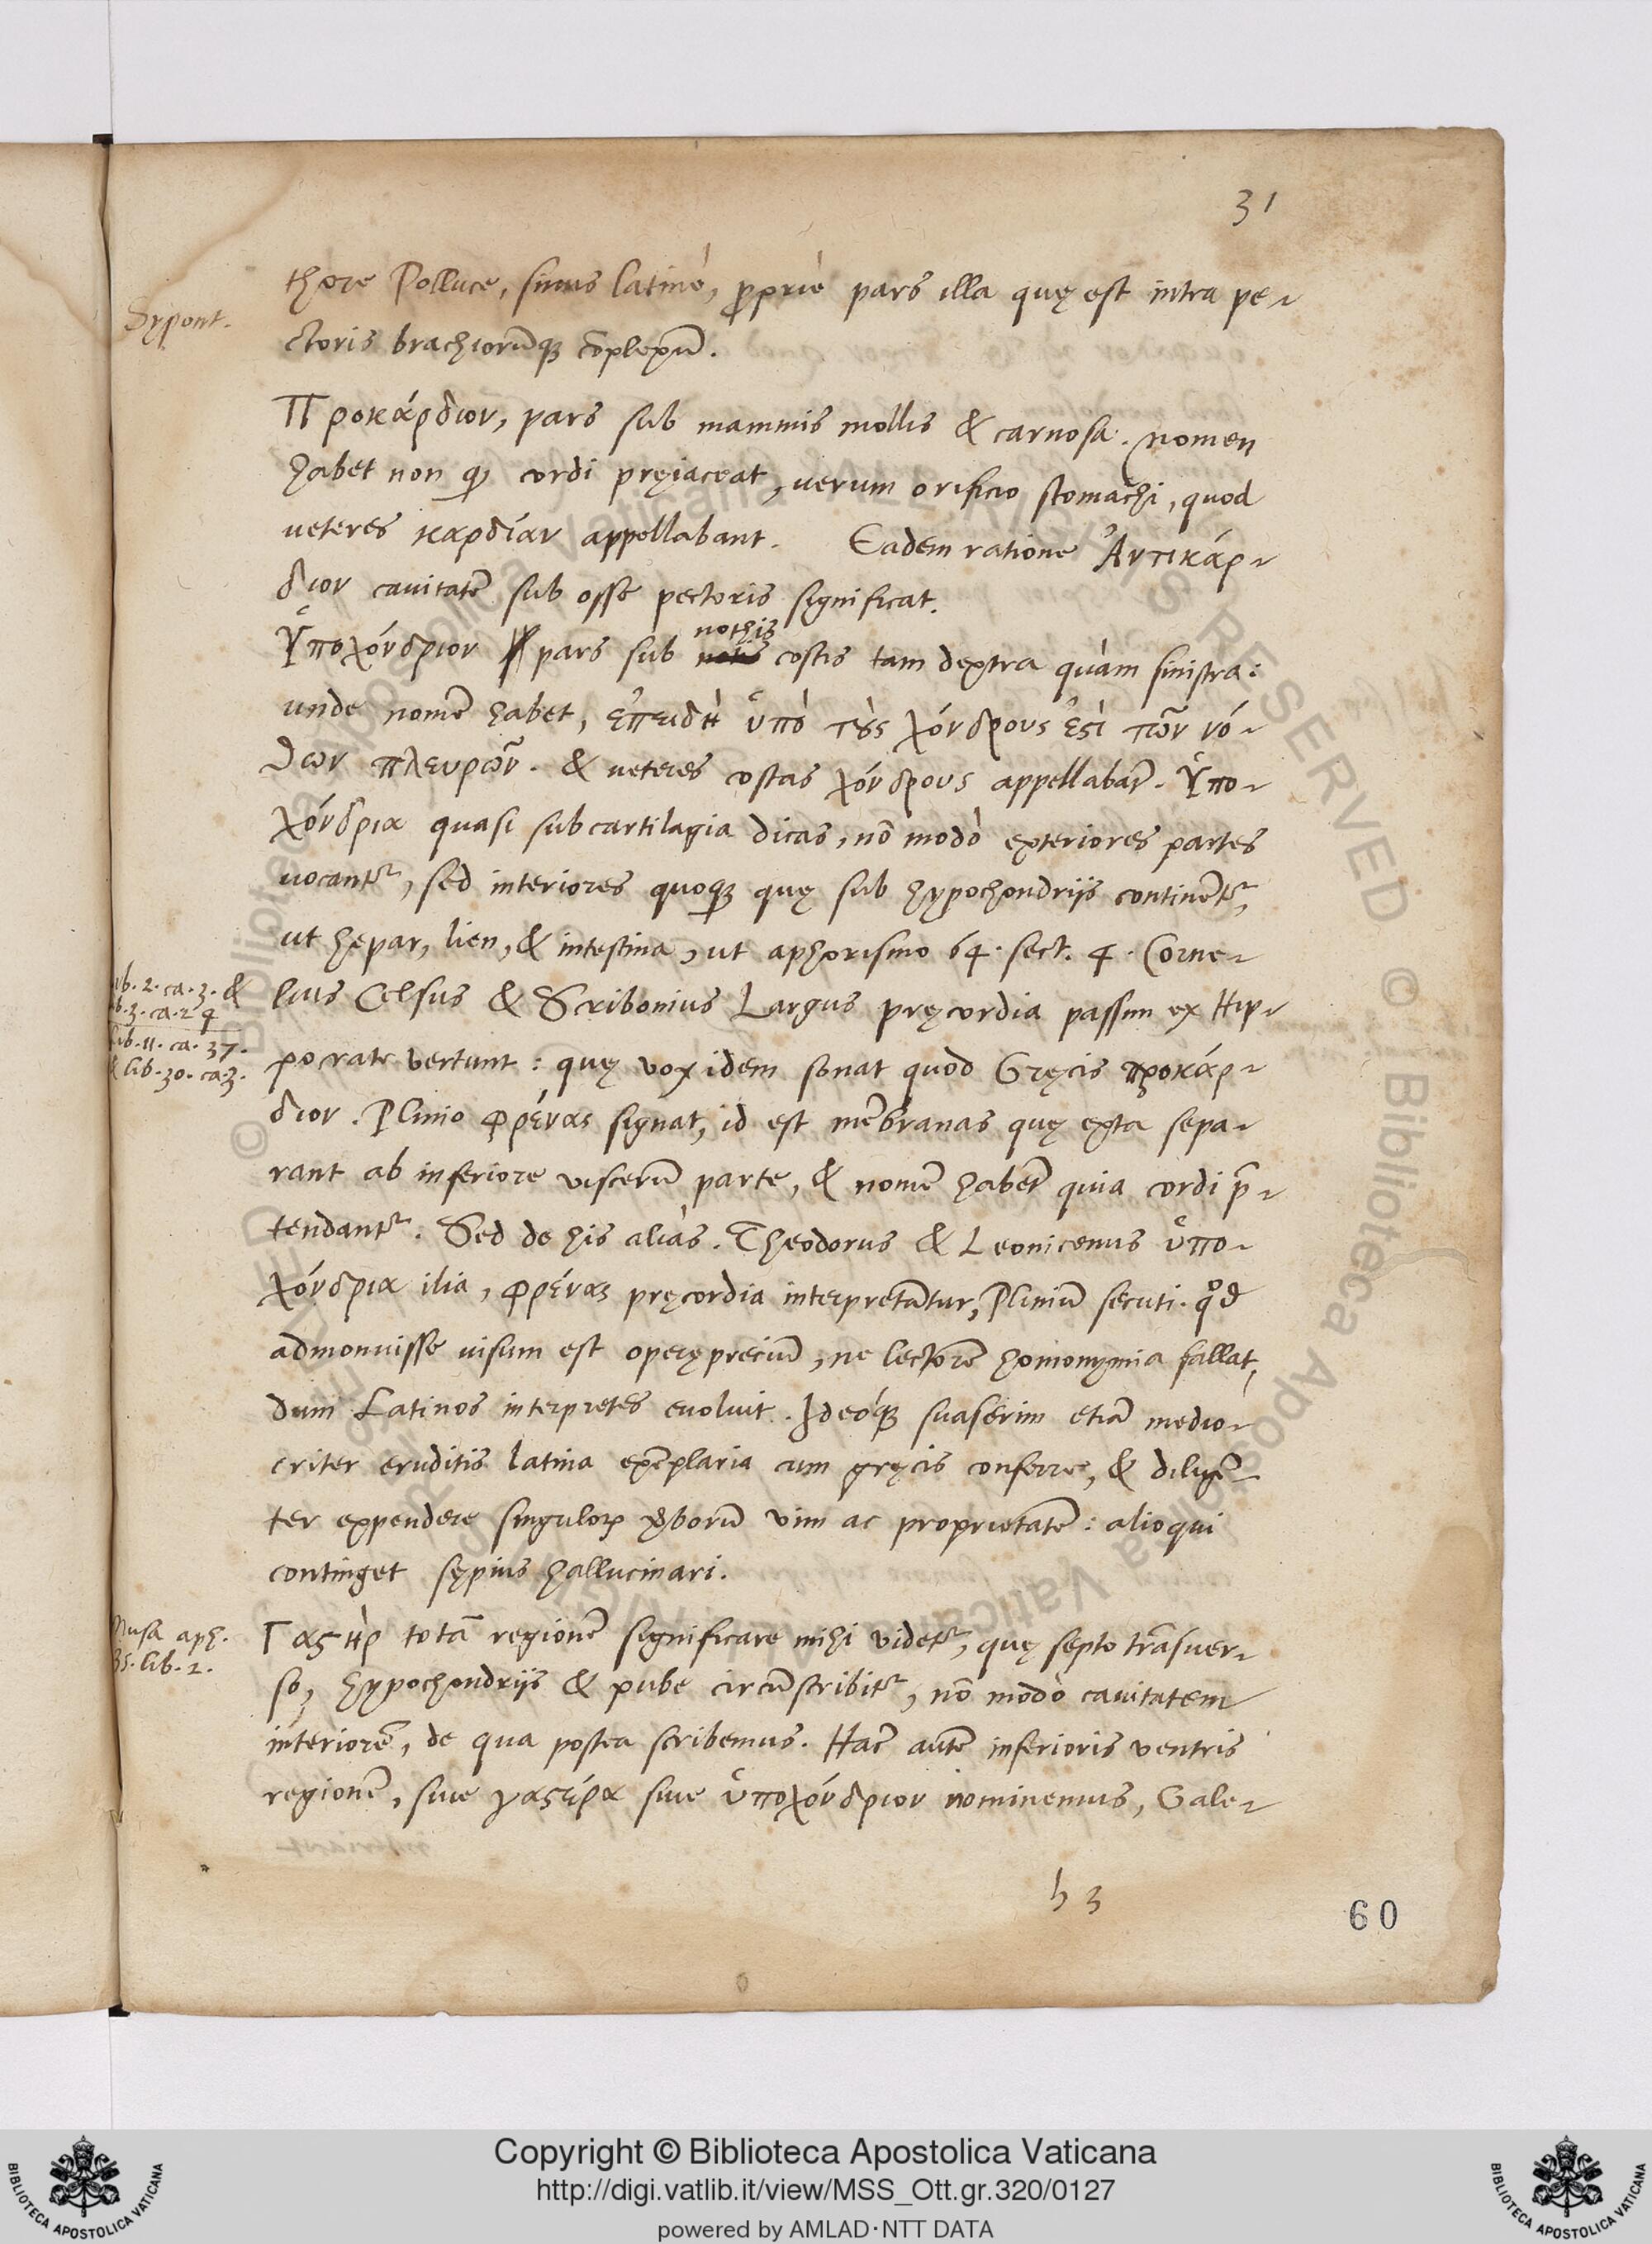 31
thore Polluce, sinus latinè, ꝓpriè pars illa quę est intra pe-
Sypont.
ctoris brachiorūqꝫ cōplexū.
Προκάρδιον, pars sub mammis mollis & carnosa. nomen
habet non ꝙ cordi pręiaceat, uerum orificio stomachi, quod
ueteres καρδίαν appellabant. Eadem ratione Ἀντικάρ-
διον cauitatē sub osse pectoris significat.
nothis
Ὑποχόνδριον pars sub costis tam dextra quàm sinistra:
unde nomē habet, ἐπειδὴ ὑπὸ τȣ̀ς χόνδρους ἐϛὶ τῶν νό-
θων πλευρῶν. & ueteres costas χόνδρους appellabāt. Ὑπο-
χόνδρια quasi subcartilagia dicas, nō modò exteriores partes
uocantr, sed interiores quoqꝫ quę sub hypochondrijs continētr,
ut hepar, lien, & intestina, ut aphorismo 64. sect. 4. Corne-
lib. 2. ca. 3. &
lib. 3. ca. 24
lius Celsus & Scribonius Largus pręcordia passim ex Hip-
lib. 11. ca. 37.
& lib. 30. ca. 3.
pocrate vertunt: quę vox idem sonat quod Gręcis προκάρ-
διον. Plinio φρένας signat, id est mēbranas quę exta sepa-
rant ab inferiore viscerū parte, & nomē habēt quia cordi p̄-
tendantr. Sed de his aliàs. Theodorus & Leonicenus ὑπο-
χόνδρια ilia, φρένας pręcordia interpretātur, Pliniū secuti. qd
admonuisse uisum est operępreciū, ne lectorē homonymia fallat,
dum Latinos interpretes euoluit. Ideóqꝫ suaserim etiā medio-
criter eruditis latina exēplaria cum gręcis conferre, & diligē-
ter expendere singuloꝝ verborū vim ac proprietatē: alioqui
continget sępius hallucinari.
Musa aph.
35. lib. 2.
Γαϛὴρ totā regionē significare mihi videtr, quę septo trāsuer-
so, hypochondrijs & pube circūscribitr, nō modò cauitatem
interiorē, de qua postea scribemus. Hāc autē inferioris ventris
regionē, siue γαϛέρα siue ὑποχόνδριον nominemus, Gale-
h 3
60
© Biblioteca Apostolica Vaticana ALL RIGHTS RESERVED
Copyright © Biblioteca Apostolica Vaticana
http://digi.vatlib.it/view/MSS_Ott.gr.320/0127
powered by AMLAD·NTT DATA
BIBLIOTECA APOSTOLICA VATICANA
BIBLIOTECA APOSTOLICA VATICANA